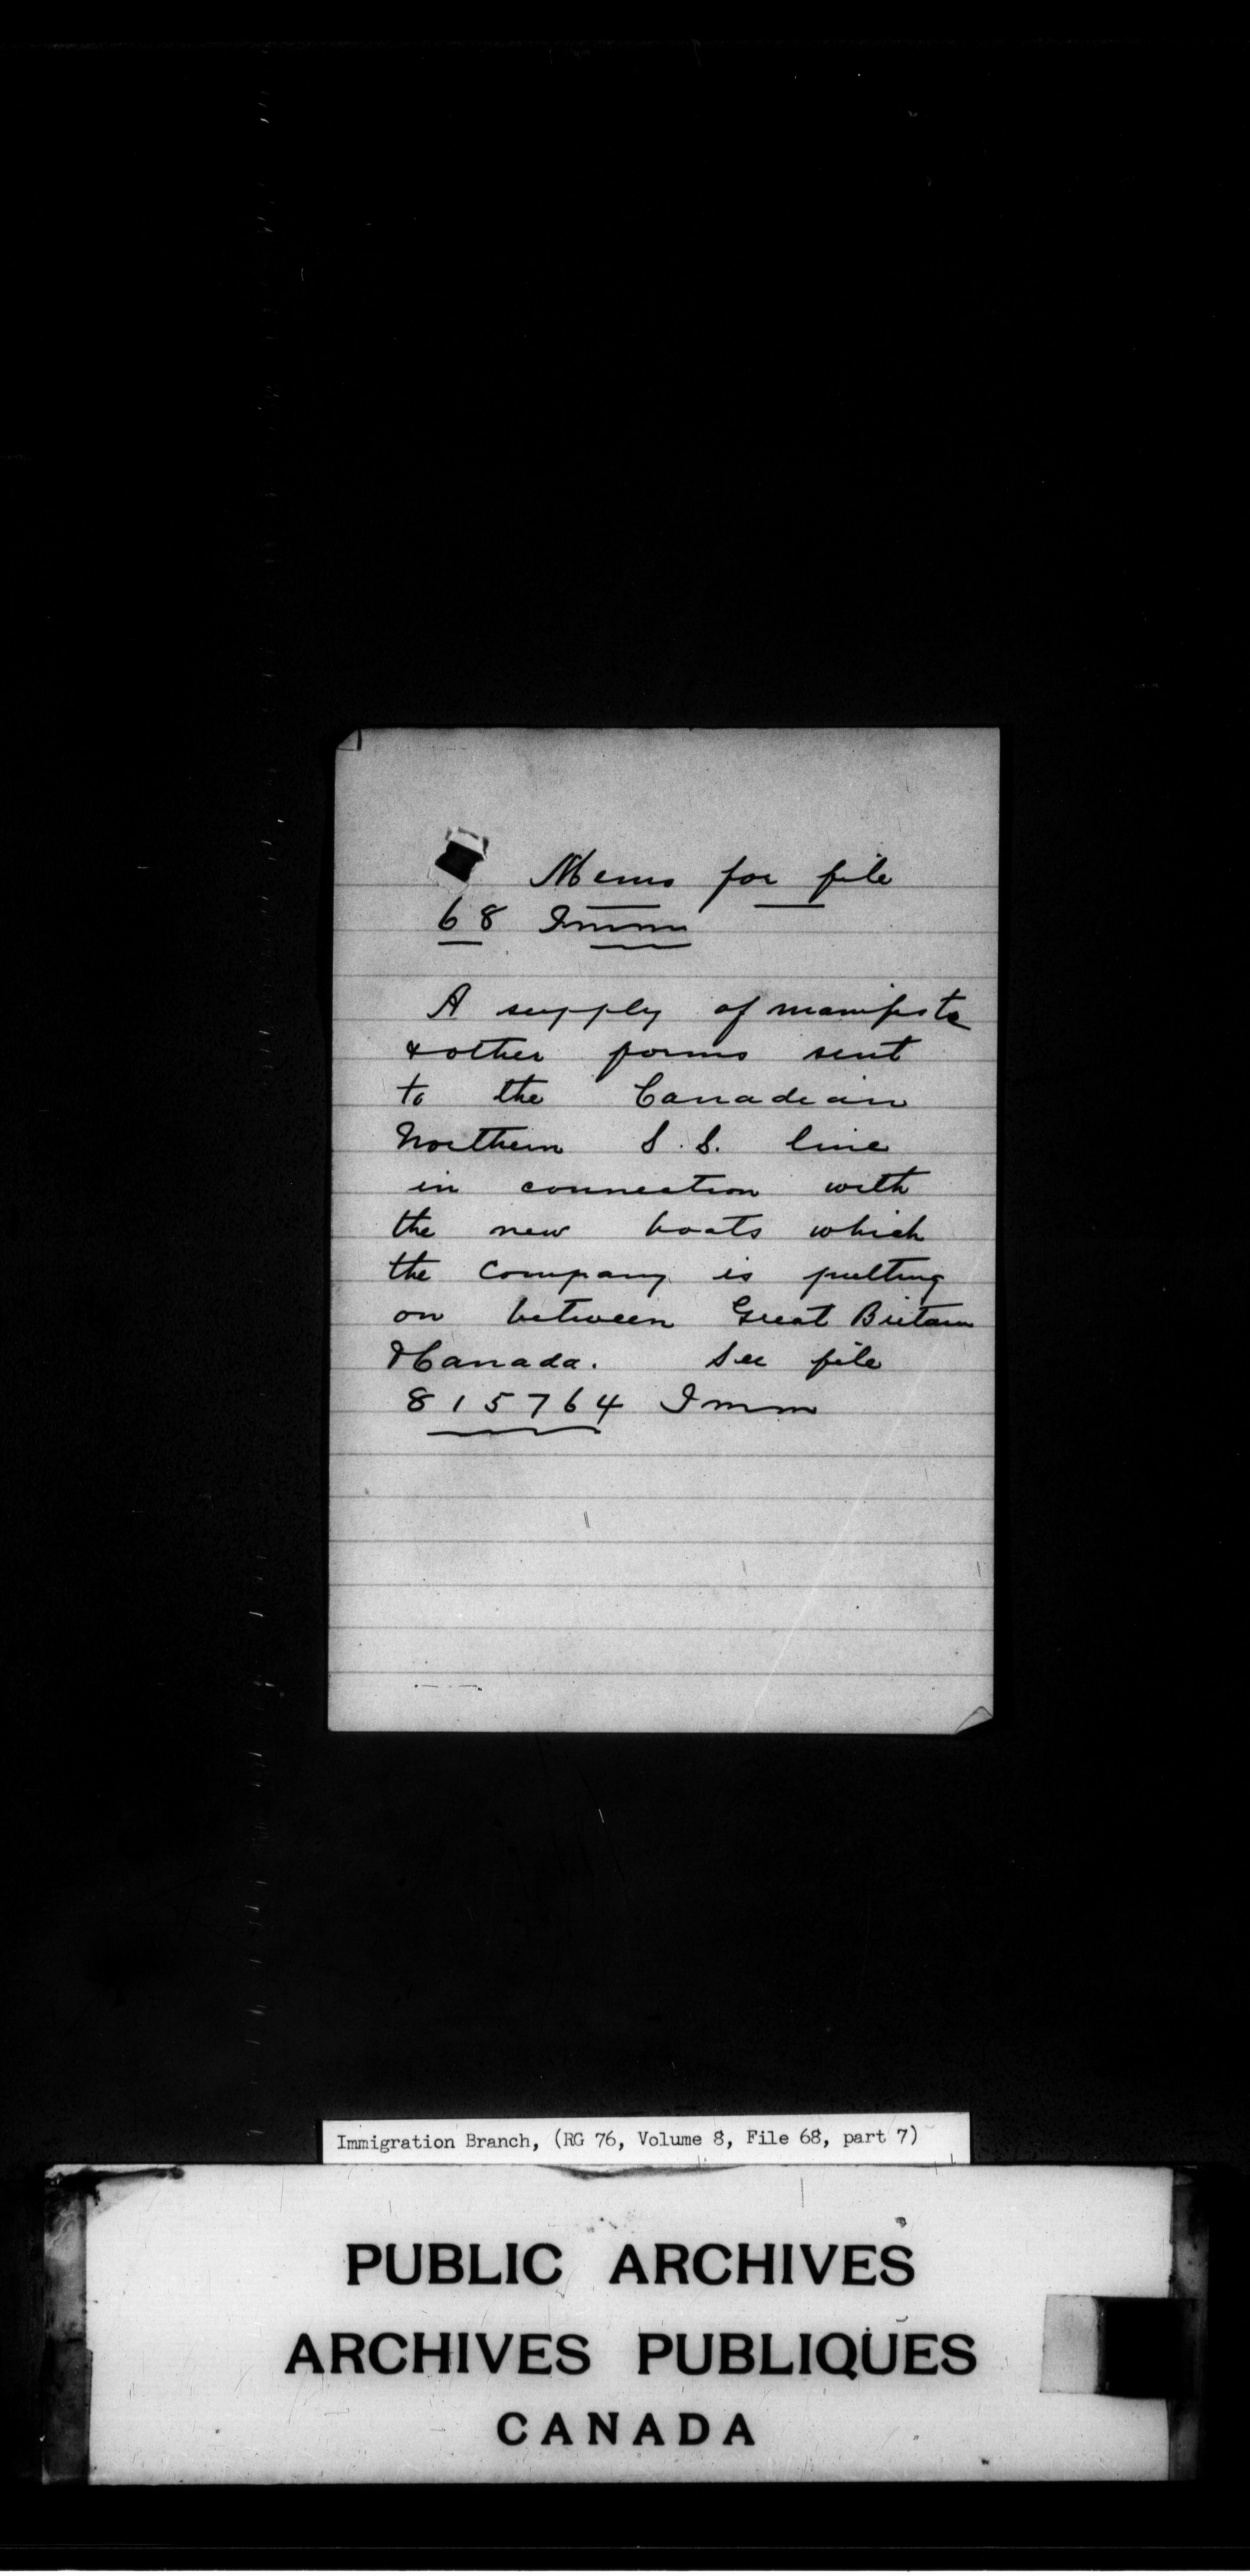 Memo for file
68 Imm
A supply of manifests
& other forms sent
to the Canadian
Northern S.S. line
in connection with
the new boats which
the Company is putting
on between Great Britain
& Canada. See file
815764 Imm
Immigration Branch, (RG 76, Volume 8, File 68, part 7)
PUBLIC ARCHIVES
ARCHIVES PUBLIQUES
CANADA